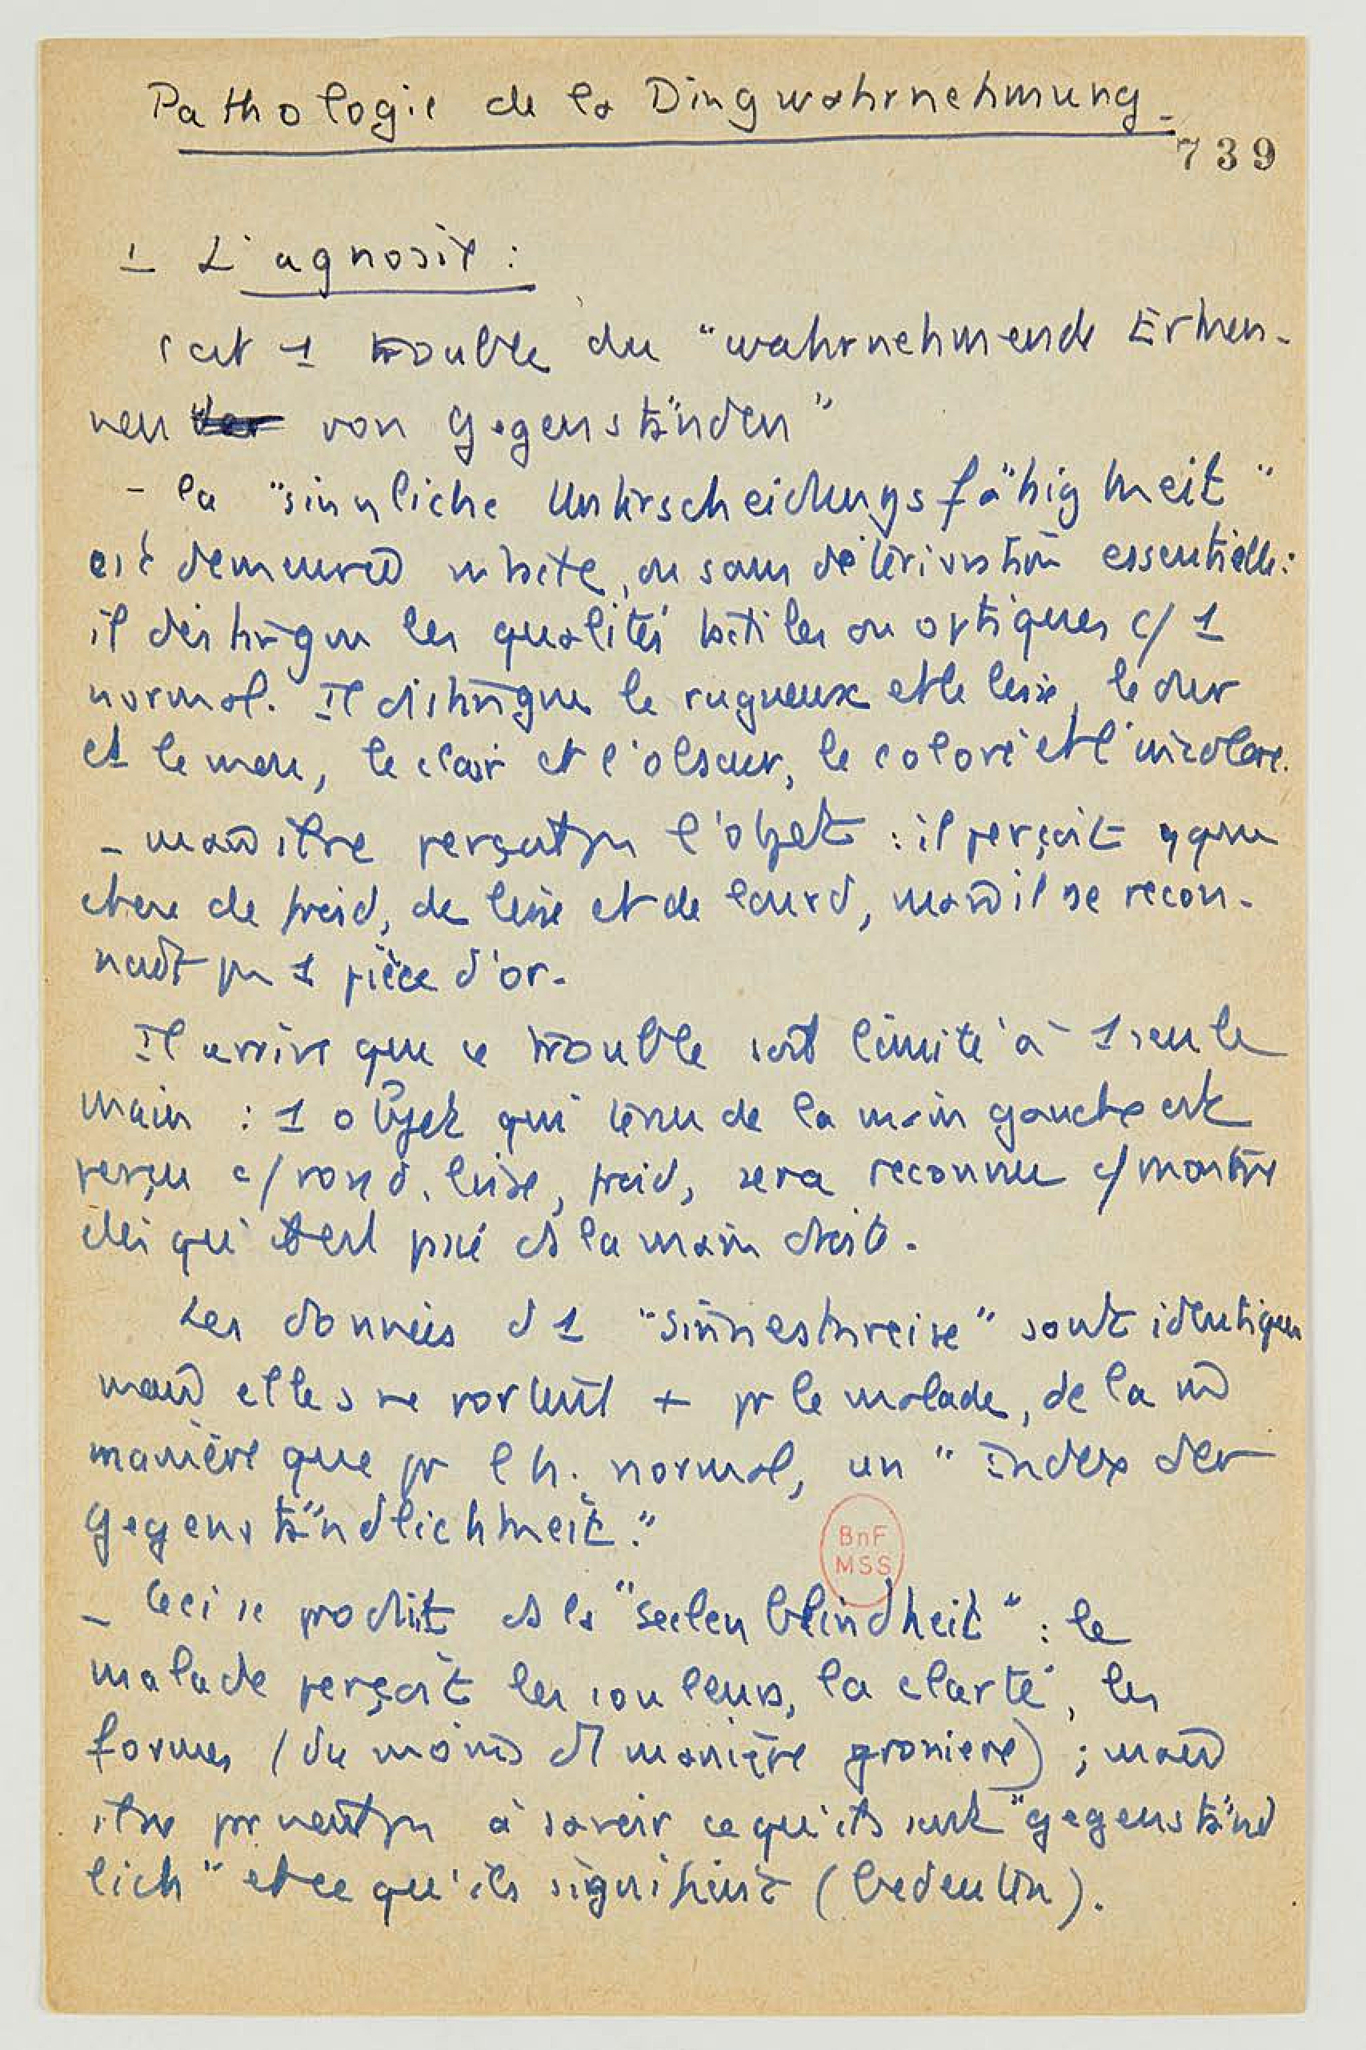 Pathologie de la Dingwahrnehmung_
739
1_ L'agnosie :
c'est 1 trouble du "wahrnehmende Erken-
nen von Gegenständen"
- la "sinnliche Unterscheidungsfähigkeit"
est demeurée intacte, ou sans détérioration essentielle :
il distingue les qualités tactiles ou optiques c/ 1
normal. Il distingue le rugueux et le lisse, le dur
et le mou, le clair et l'obscur, le coloré et l'incolore.
- mais il ne perçoit pas l'objet : il perçoit qque
chose de froid, de lisse et de lourd, mais il ne recon-
naît pas 1 pièce d'or.
Il arrive que ce trouble soit limité à 1 seule
main : 1 objet qui tenu de la main gauche est
perçu c/ rond, lisse, froid, sera reconnu c/ montre
dès qu'il est pris ds la main droite.
Les données d'1 "Sinneskreise" sont identiques
mais elles ne portent + pr le malade, de la m̂
manière que pr l'h. normal, un "Index der
Gegenständlichkeit."
- Ceci se produit ds la "Seelenblindheit" : le
BnF
MSS
malade perçoit les couleurs, la clarté, les
formes (du moins d'1 manière grossière) ; mais
il ne parvient pas à savoir ce qu'ils sont "gegenständ
lich" et ce qu'ils signifient (bedeuten).